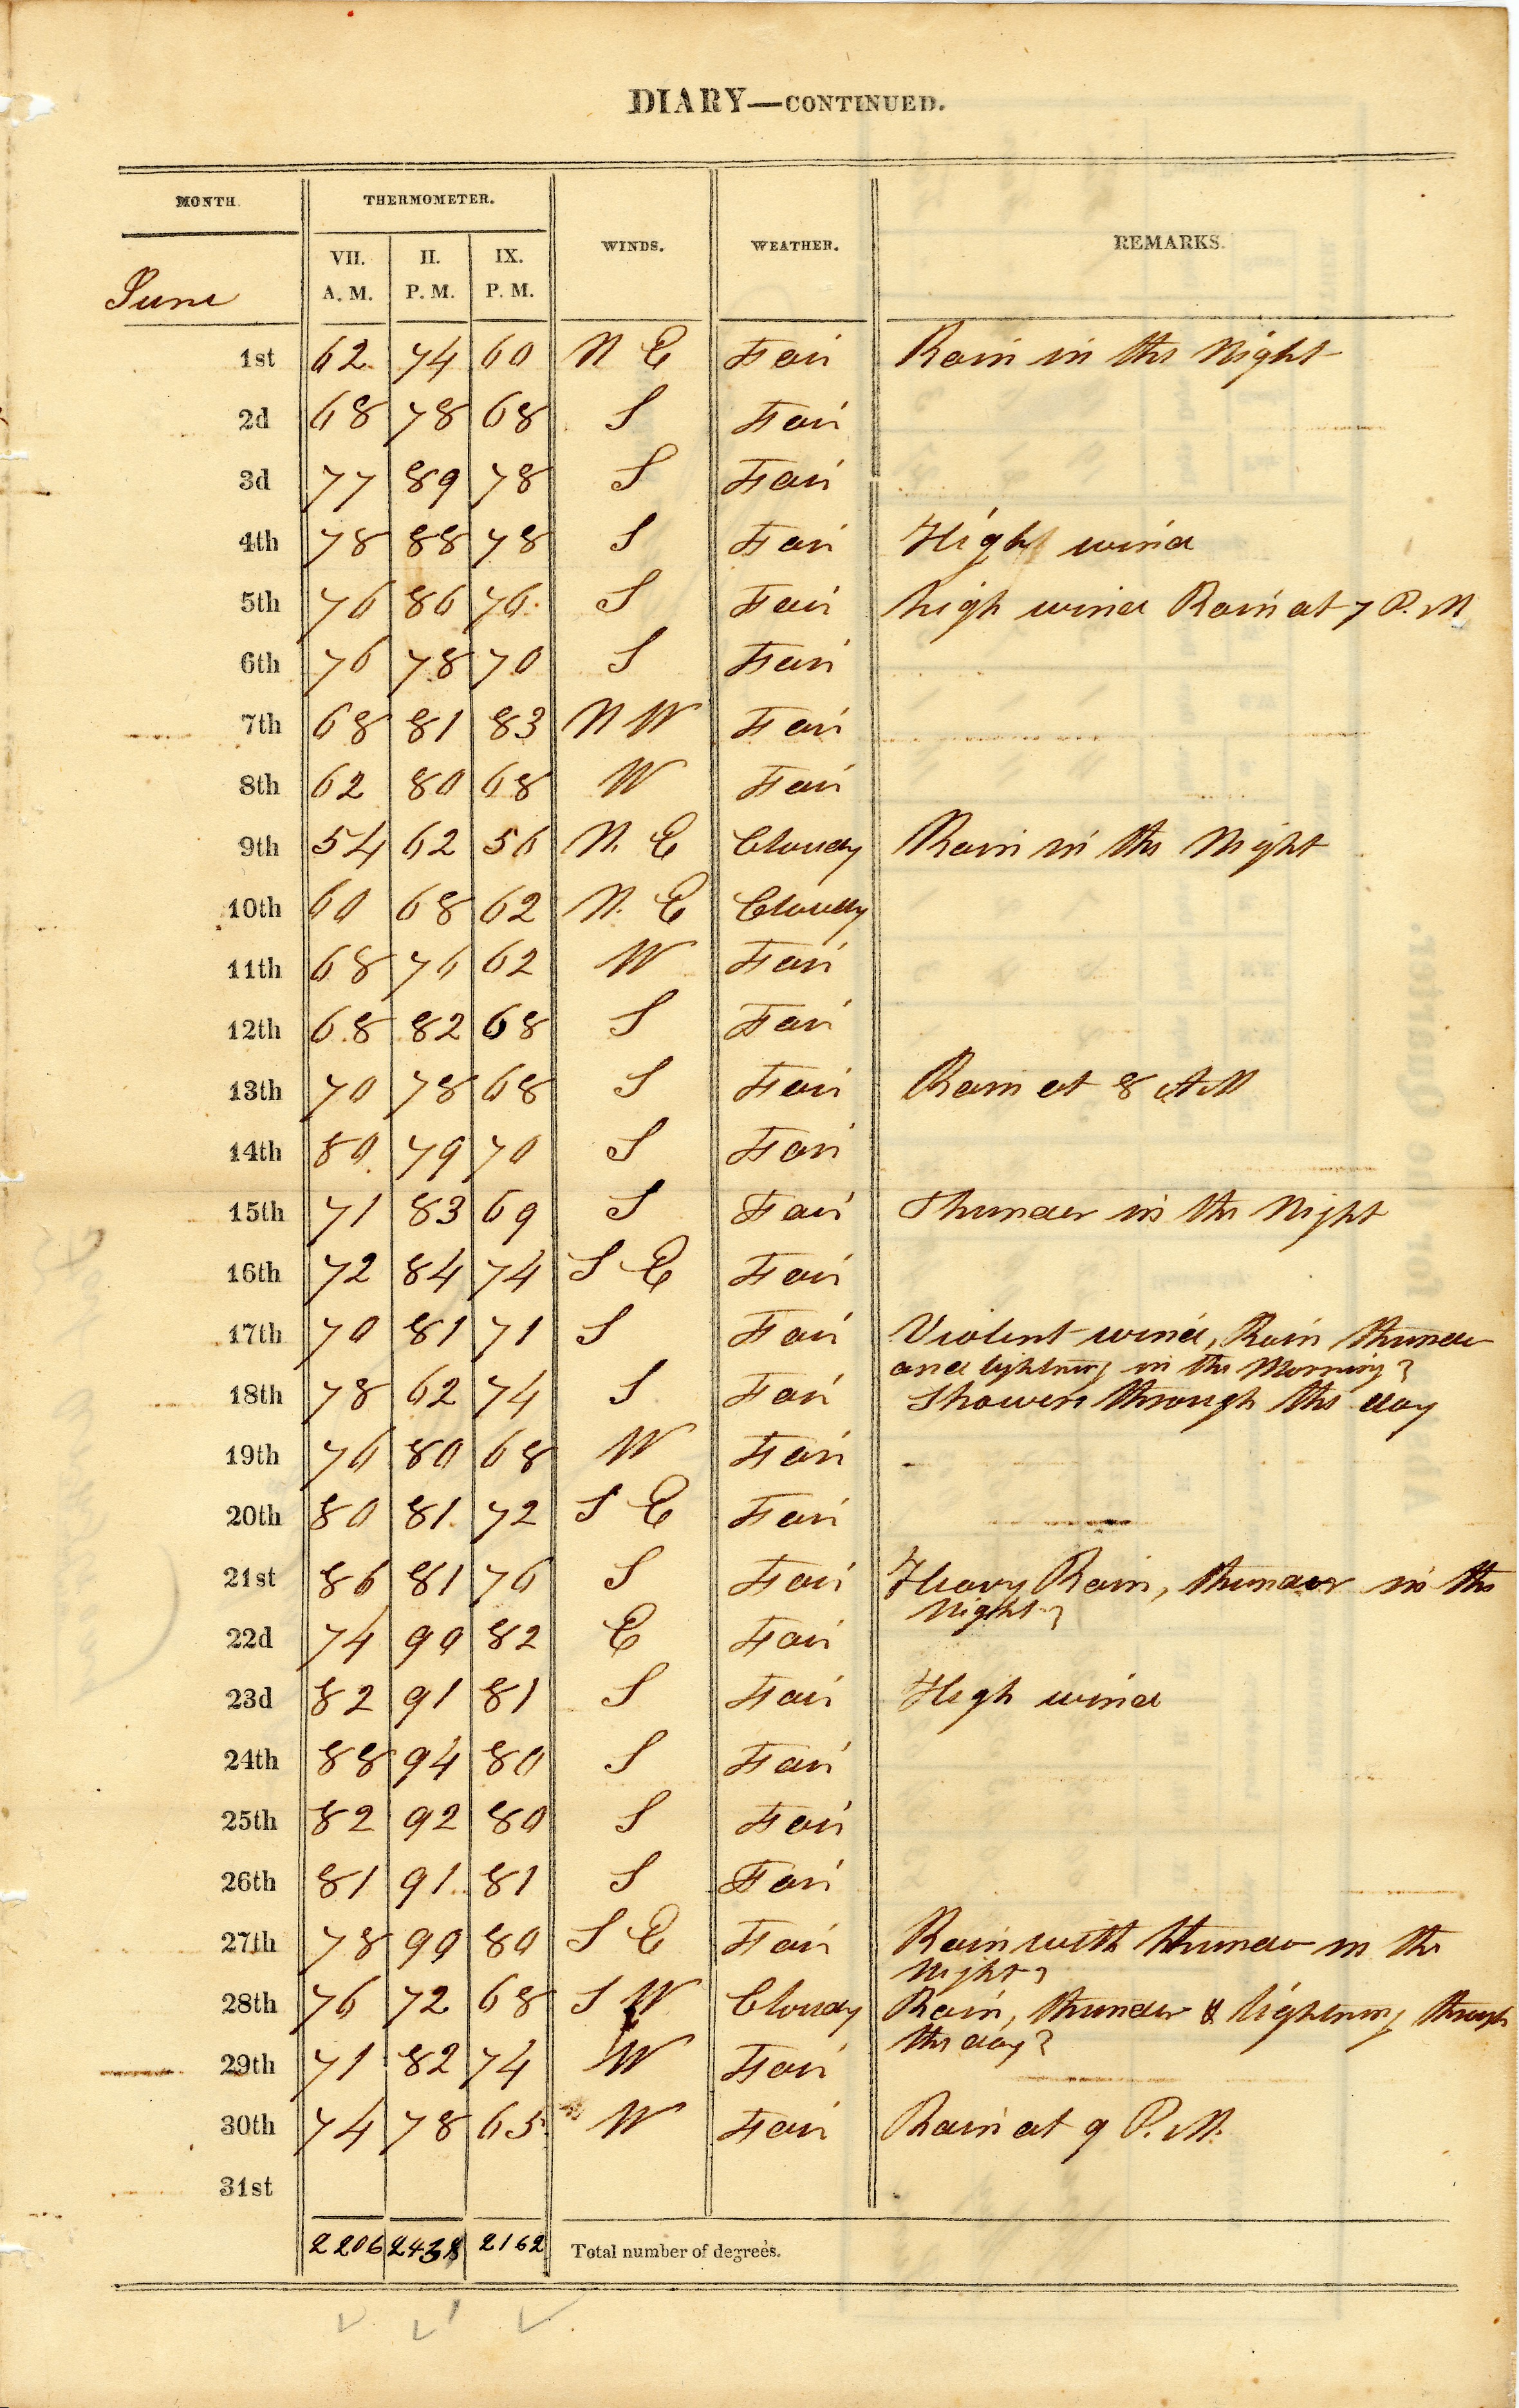 DIARY—CONTINUED.
MONTH. THERMOMETER. WINDS. WEATHER. REMARKS.
VII. A. M. II. P. M. IX. P. M.
June
1st 62 74 60 N E Fair Rain in the Night
2d 68 78 68 S Fair
3d 77 89 78 S Fair
4th 78 88 78 S Fair High wind
5th 76 86 76 S Fair high wind Rain at 7 P. M
6th 76 78 70 S Fair
7th 68 81 83 N W Fair
8th 62 80 68 W Fair
9th 54 62 56 N. E Cloudy Rain in the Night
10th 60 68 62 N. E Cloudy
11th 68 76 62 W Fair
12th 68 82 68 S Fair
13th 70 78 68 S Fair Rain at 8 AM
14th 80 79 70 S Fair
15th 71 83 69 S Fair Thunder in the Night
16th 72 84 74 S E Fair
17th 70 81 71 S Fair Violent wind, Rain thunder
and lightning in the Morning
18th 78 62 74 S Fair Showers through the day
19th 76 80 68 W Fair
20th 80 81 72 S E Fair
21st 86 81 76 S Fair Heavy Rain, thunder in the
Night
22d 74 90 82 E Fair
23d 82 91 81 S Fair High wind
24th 88 94 80 S Fair
25th 82 92 80 S Fair
26th 81 91 81 S Fair
27th 78 90 80 S E Fair Rain with thunder in the
Night
28th 76 72 68 S W Cloudy Rain, thunder & lightning through
the day
29th 71 82 74 W Fair
30th 74 78 65 W Fair Rain at 9 P. M.
31st
2206 2438 2162 Total number of degrees.